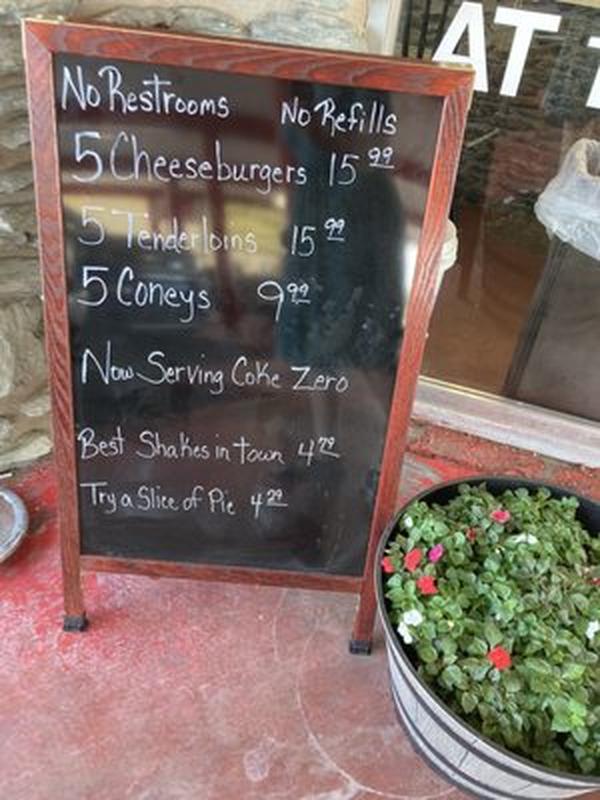 AT
No Restrooms No Refills
5 Cheeseburgers 15 99
5 Tenderloins 15 99
5 Coneys 9 99
Now Serving Coke Zero
Best Shakes in town 4 79
Try a Slice of Pie 4 29